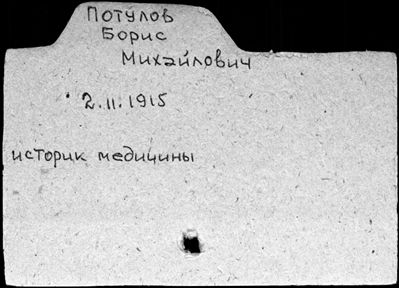 Потулов
Борис
Михайлович
2.11.1915
историк медицины